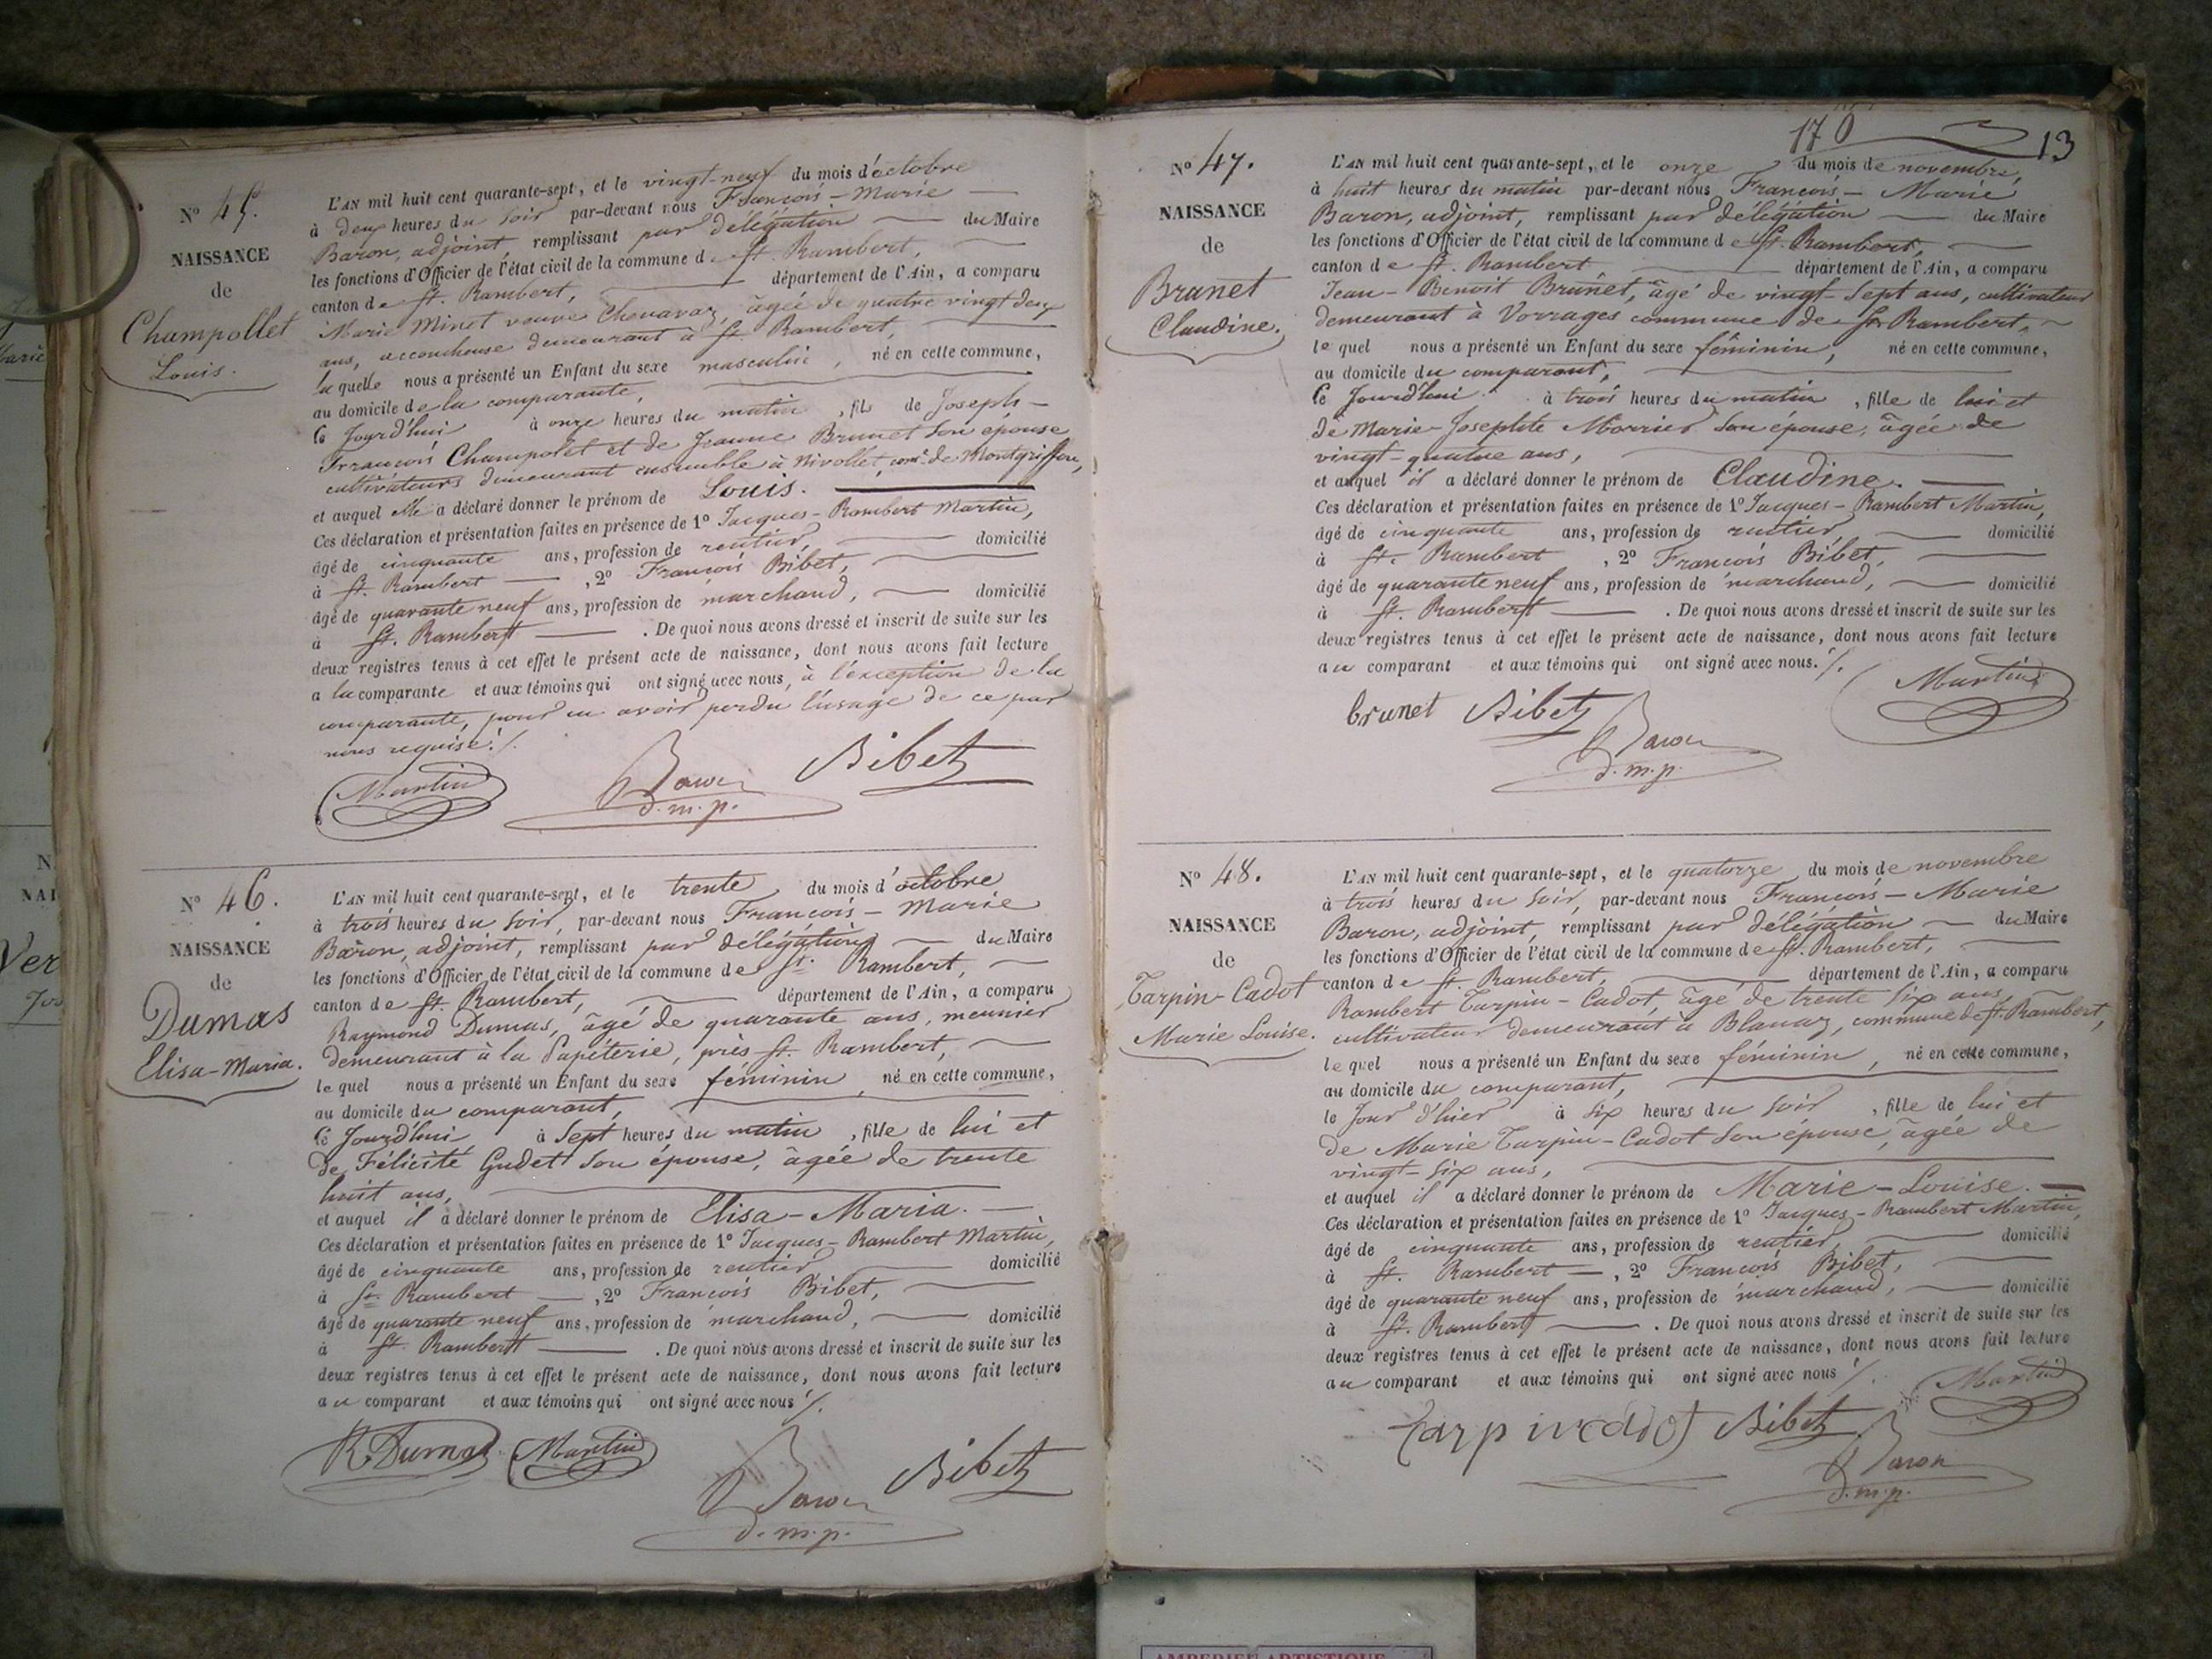 N° 45.
NAISSANCE
de
Champollet
Louis.
L'AN mil huit cent quarante-sept, et le vingt-neuf du mois d'octobre
à deux heures du soir par-devant nous François-Marie
Baron, adjoint, remplissant par délégation du Maire
les fonctions d'Officier de l'état civil de la commune de St. Rambert,
canton de St. Rambert, département de l'Ain, a comparu
Marie Minet veuve Chenavaz, âgée de quatre vingt deux
ans, accoucheuse demeurant à St. Rambert,
laquelle nous a présenté un Enfant du sexe masculin, né en cette commune,
au domicile de la comparante,
ce Jourd'hui à onze heures du matin, fils de Joseph-
François Champolet et de Jeanne Brunet son epouse
cultivateurs demeurant ensemble à Nivollet, com.e de Montgriffon,
et auquel elle a déclaré donner le prénom de Louis.
Ces déclaration et présentation faites en présence de 1° Jacques-Rambert Martin,
âgé de cinquante ans, profession de rentier, domicilié
à St. Rambert, 2° François Bibet,
âgé de quarante neuf ans, profession de marchand, domicilié
à St. Rambert. De quoi nous avons dressé et inscrit de suite sur les
deux registres tenus à cet effet le présent acte de naissance, dont nous avons fait lecture
a la comparante et aux témoins qui ont signé avec nous, à l'exception de la
comparante, pour en avoir perdu l'usage de ce par
nous requise./.
Martin Baron Bibet
d.m.p.
N° 46.
NAISSANCE
de
Dumas
Elisa-Maria.
L'AN mil huit cent quarante-sept, et le trente du mois d'octobre
à trois heures du soir, par-devant nous François-Marie
Baron, adjoint, remplissant par délégation du Maire
les fonctions d'Officier de l'état civil de la commune de St. Rambert,
canton de St. Rambert, département de l'Ain, a comparu
Raymond Dumas, âgé de quarante ans, meunier
demeurant à la Papéterie, près St. Rambert,
lequel nous a présenté un Enfant du sexe féminin, né en cette commune,
au domicile du comparant,
ce Jourd'hui à sept heures du matin, fille de lui et
de Félicité Gudet son épouse, âgée de trente
huit ans,
et auquel il a déclaré donner le prénom de Elisa-Maria.
Ces déclaration et présentation faites en présence de 1° Jacques-Rambert Martin,
âgé de cinquante ans, profession de rentier domicilié
à St. Rambert, 2° François Bibet,
âgé de quarante neuf ans, profession de marchand, domicilié
à St. Rambert. De quoi nous avons dressé et inscrit de suite sur les
deux registres tenus à cet effet le présent acte de naissance, dont nous avons fait lecture
au comparant et aux témoins qui ont signé avec nous ./.
R. Dumas Martin Baron Bibet
d.m.p.
170 13
N° 47.
NAISSANCE
de
Brunet
Claudine.
L'AN mil huit cent quarante-sept, et le onze du mois de novembre,
à huit heures du matin par-devant nous François-Marie
Baron, adjoint, remplissant par délégation du Maire
les fonctions d'Officier de l'état civil de la commune de St. Rambert,
canton de St. Rambert département de l'Ain, a comparu
Jean-Benoit Brunet, âgé de vingt-sept ans, cultivateur
demeurant à Vorrages commune de St. Rambert,
lequel nous a présenté un Enfant du sexe féminin, né en cette commune,
au domicile du comparant,
ce Jourd'hui à trois heures du matin, fille de lui et
de Marie-Josephte Morrier son épouse, âgée de
vingt-quatre ans,
et auquel il a déclaré donner le prénom de Claudine.
Ces déclaration et présentation faites en présence de 1° Jacques-Rambert Martin,
âgé de cinquante ans, profession de rentier domicilié
à St. Rambert, 2° François Bibet,
âgé de quarante neuf ans, profession de marchand, domicilié
à St. Rambert. De quoi nous avons dressé et inscrit de suite sur les
deux registres tenus à cet effet le présent acte de naissance, dont nous avons fait lecture
au comparant et aux témoins qui ont signé avec nous./.
brunet Bibet Baron Martin
d.m.p.
N° 48.
NAISSANCE
de
Tarpin-Cadot
Marie Louise.
L'AN mil huit cent quarante-sept, et le quatorze du mois de novembre
à trois heures du soir, par-devant nous François-Marie
Baron, adjoint, remplissant par délégation du Maire
les fonctions d'Officier de l'état civil de la commune de St. Rambert,
canton de St. Rambert, département de l'Ain, a comparu
Rambert Tarpin-Cadot, âgé de trente six ans,
cultivateur demeurant à Blanaz, commune de St. Rambert,
lequel nous a présenté un Enfant du sexe féminin, né en cette commune,
au domicile du comparant,
le Jour d'hier à six heures du soir, fille de lui et
de Marie Tarpin-Cadot son épouse, âgée de
vingt-six ans,
et auquel il a déclaré donner le prénom de Marie-Louise.
Ces déclaration et présentation faites en présence de 1° Jacques-Rambert Martin,
âgé de cinquante ans, profession de rentier, domicilié
à St. Rambert, 2° François Bibet,
âgé de quarante neuf ans, profession de marchand, domicilié
à St. Rambert. De quoi nous avons dressé et inscrit de suite sur les
deux registres tenus à cet effet le présent acte de naissance, dont nous avons fait lecture
au comparant et aux témoins qui ont signé avec nous ./.
Tarpin cadot Bibet Martin
Baron
d.m.p.